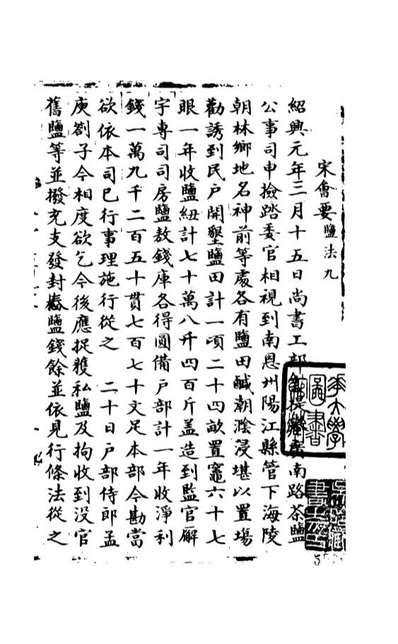 宋會要 鹽法九
紹興元年三月十五日尚書工部
南路茶鹽
公事司申撿踏委官相視到南恩州陽江縣管下海陵
朝林鄉地名神前等處各有鹽田鹹潮渰浸堪以置場
勸誘到民戶開墾鹽田計一頃二十四畝置竈六十七
眼一年收鹽紐計七十萬八千四百斤盖造到監官廨
宇專司司房鹽敖錢庫各得圓備戶部計一年收淨利
錢一萬九千二百五十貫七百七十文足本部今勘當
欲依本司已行事理施行從之 二十日戶部侍郎孟
庾劄子今相度欲乞今後應捉獲私鹽及拘收到沒官
舊鹽等並撥充支發封樁鹽錢餘並依見行條法從之
5